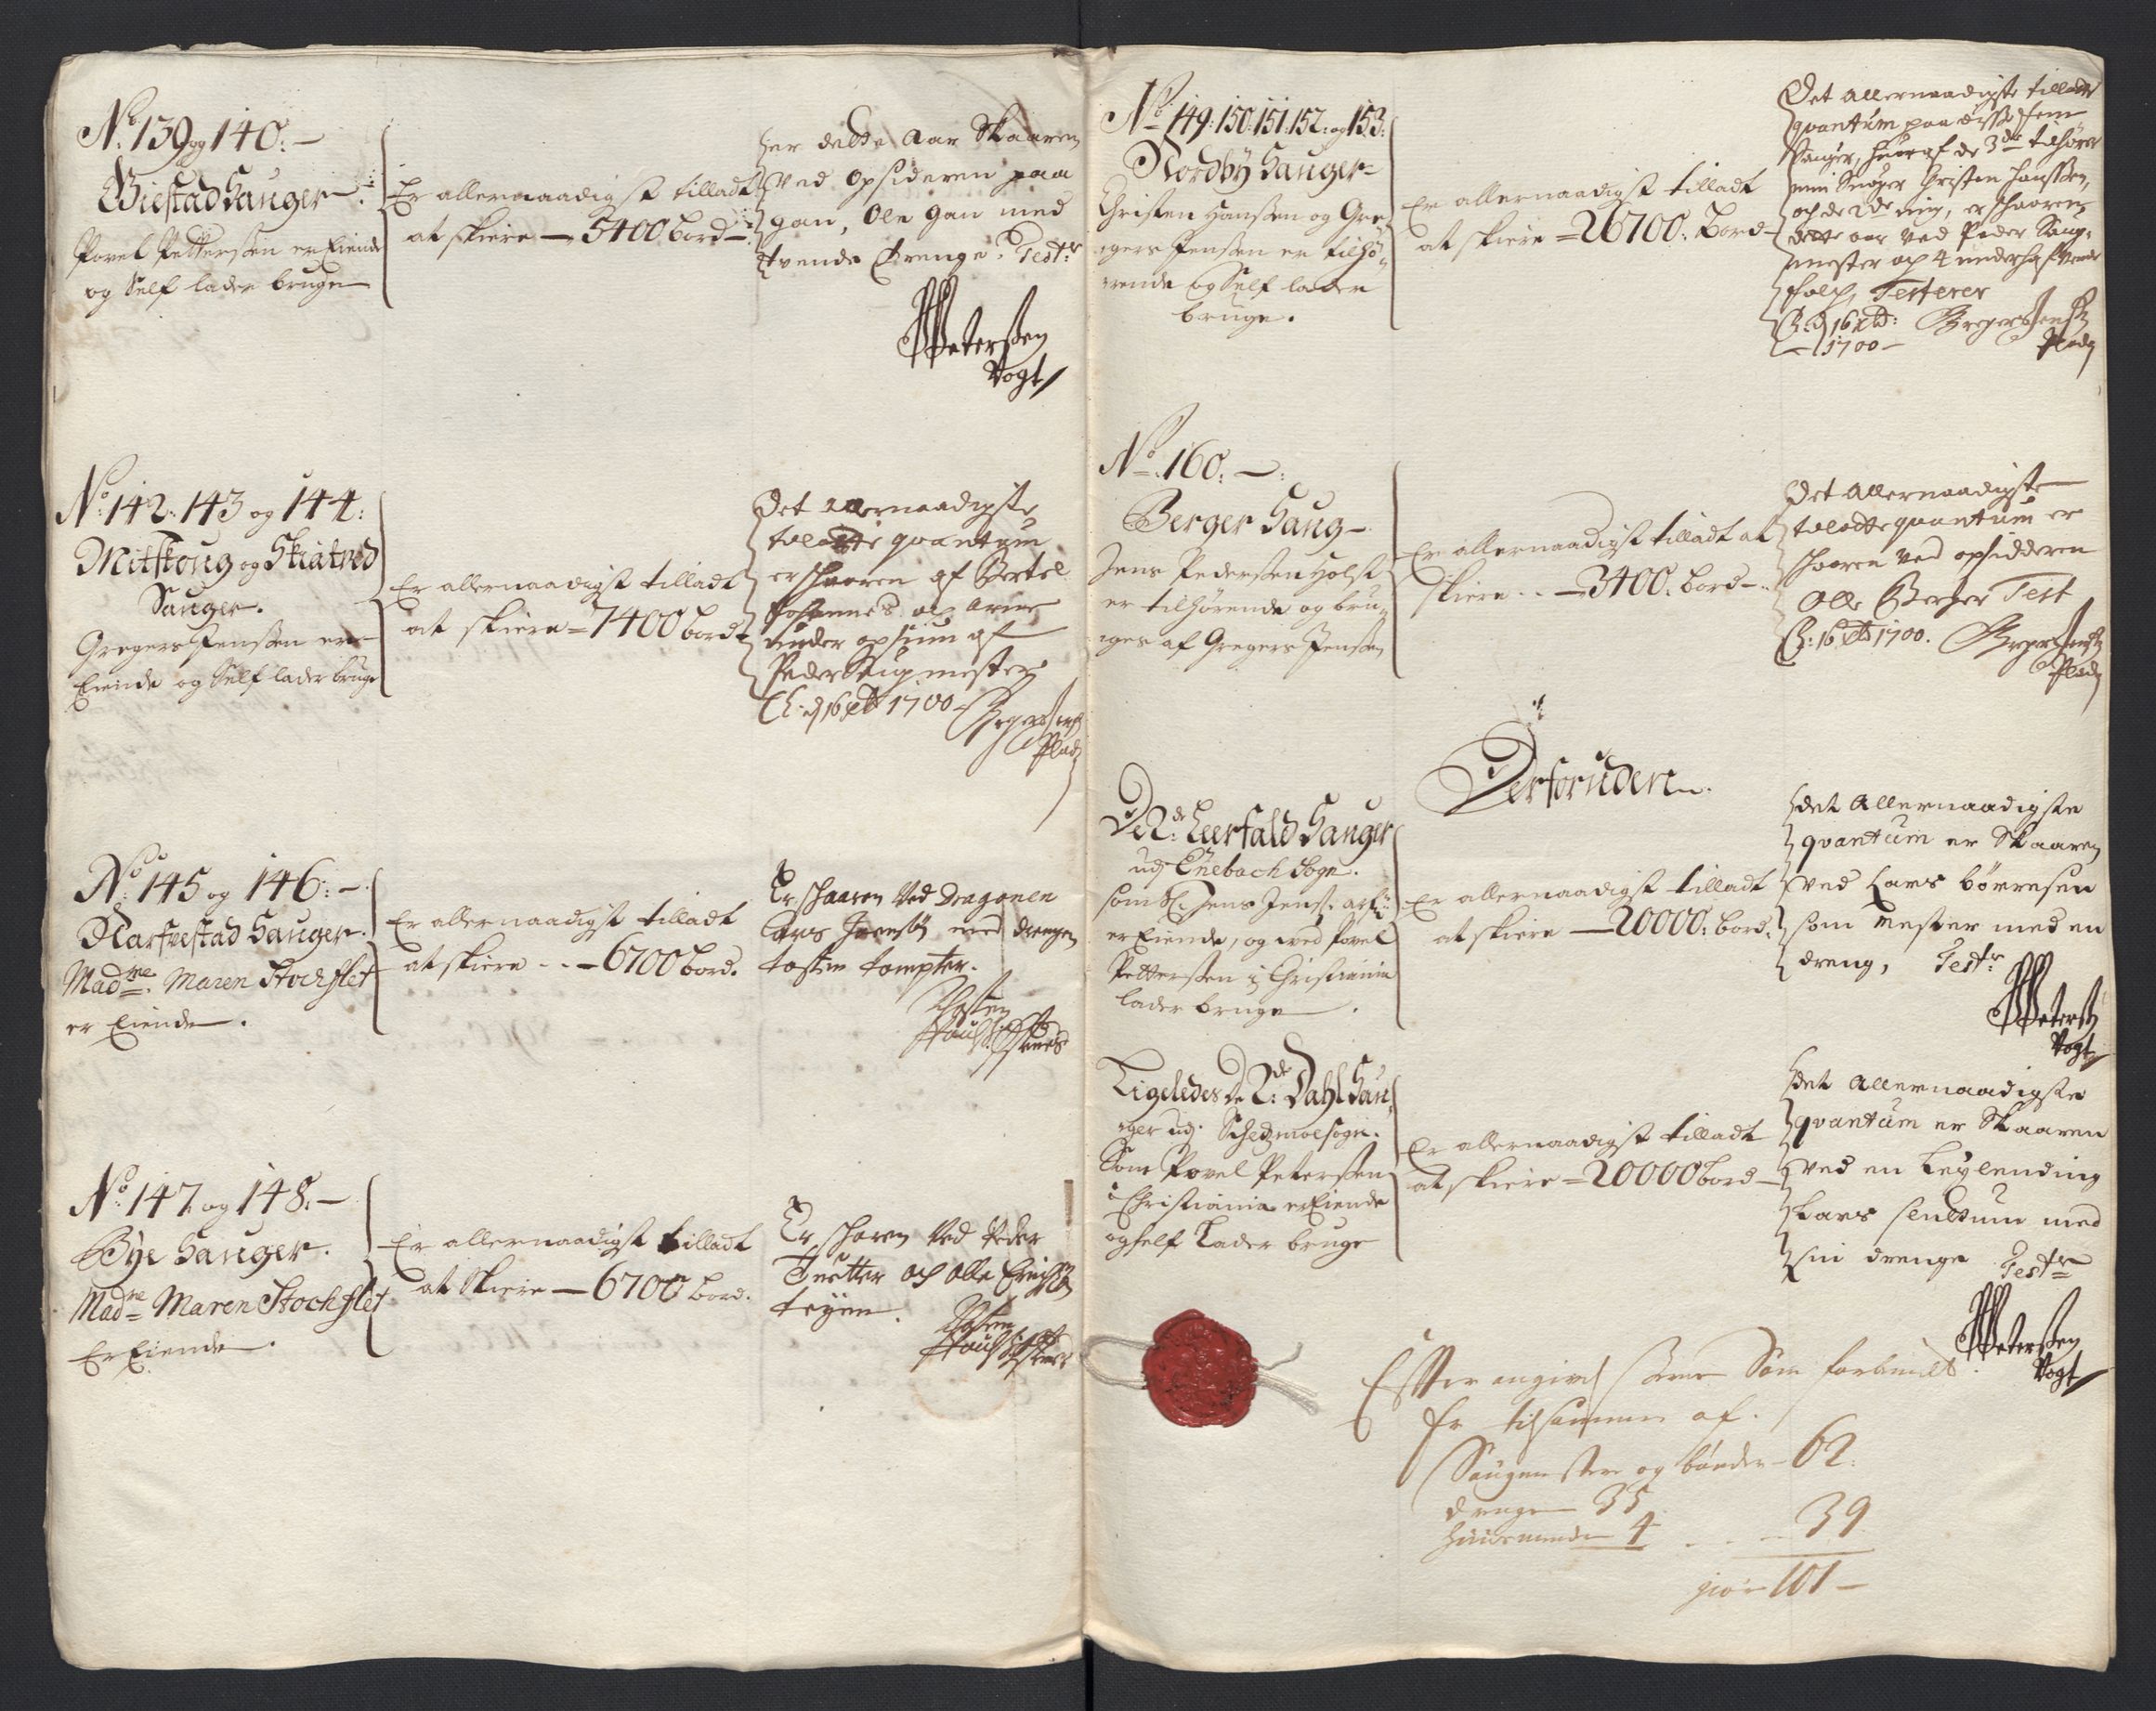 No: 139 og 140:
Biestad Sauger
Povel Pettersen er Eiende
og Self lader bruge
Er allernaadigst tilladt
at skiere 5400 bord
er dette Aar Skaaren
Ved Opsideren paa
gan, Ole gan med
tvende drenge. Testr
PPetersen
Vogt
No: 142. 143 og 144:
Mitskoug og Skiatved
Sauger.
Gregers Jensen er
Eiende og Self lader bruge
Er allernaadigst tilladt
at skiere = 7400 bord
Det allernaadigste
quantum
er schaaren af Bertel
Johannes och
under opsiun af
Peder Saugmester
Ch: d 16 xb 1700
Gregers Jens
No: 145 og 146:
Narfvestad Sauger.
Madme. Maren Stochflet
er Eiende.
Er allernaadigst tilladt
at skiere - - 6700 bord.
Er schaaren Ved Dragonen
Lars Ivensøn med drengen
tosten tompter.
No: 147 og 148.
Bye Sauger.
Madme Maren Stochflet
Er Eiende.
Er allernaadigst tilladt
at Skiere 6700 bord.
Er schoren Ved Peder
och Olle
No: 149: 150: 151: 152: og 153:
Nordby Sauger
Christen Hansen og Gre-
gers Jensen er tilhø-
rende og Self lader
bruge.
Er allernaadigst tilladt
at skiere = 26700: Bord
Det allernaadigste tilladte
qvantum paa disse fem
Sauger, hvoraf de 3de tilhører
min Svoger Christen Hanssen,
och de 2de mig, er schaaren
dette aar Ved Peder Saug-
mester och 4
folch, Testerer
Ch: d 16 xb:
1700
Gregers Jens
No. 160:
Berger Saug
Jens Pedersen Holst
er tilhørende og bru-
ges af Gregers Jensen
Er allernaadigst tilladt at
skiere - - 3400. bord
Det allernaadigste
quantum er
schaaren Ved opsidderen
Olle Berger Test
Ch: 16 xb 1700.
Gregers Jens
Derforuden.
De 2de: Leerfald Sauger
udj Enebach Sogn.
som Sl. Jens Jens: arf:
er Eiende, og Povel
Pettersen i Christiania
lader bruge.
Er allernaadigst tilladt
at skiere 20000: bord.
det Allernaadigste
qvantum er Skaaren
ved Lars børresen
som Mester med en
dreng, Testr
PPetersen
Vogt
Ligeledes de 2de: Dahl Sau-
ger udj. Schedzmoe sogn.
Som Povel Petersen
i Christiania er Eiende
og self Lader bruge
Er allernaadigst tilladt
at skiere = 20000 bord
det allernaadigste
qvantum er Skaaren
ved en Leylending
Lars med
sin drenge Testr
PPetersen
Vogt
Effter angivelserne Som forbemelt
Er tilsammen af.
Saugmestere og bønder 62:
drenge 35
Huusmænde 4 - - - 39
giør 101